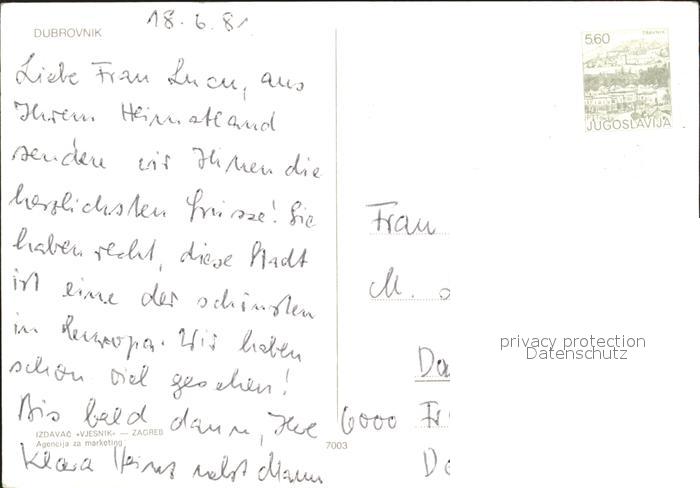 18.6.81
DUBROVNIK
Liebe Frau Lucu, aus
Ihrem Heimatland
senden wir Ihnen die
herzlichsten Grüsse! Sie
haben recht, diese Stadt
ist eine der schönsten
in Europa. Wir haben
schon viel gesehen!
Bis bald dann, Ihre
Klara nebst Mann
IZDAVAČ «VJESNIK» — ZAGREB
Agencija za marketing
7003
TRAVNIK
5.60
JUGOSLAVIJA
Frau
M.
privacy protection
Datenschutz
6000 Fr